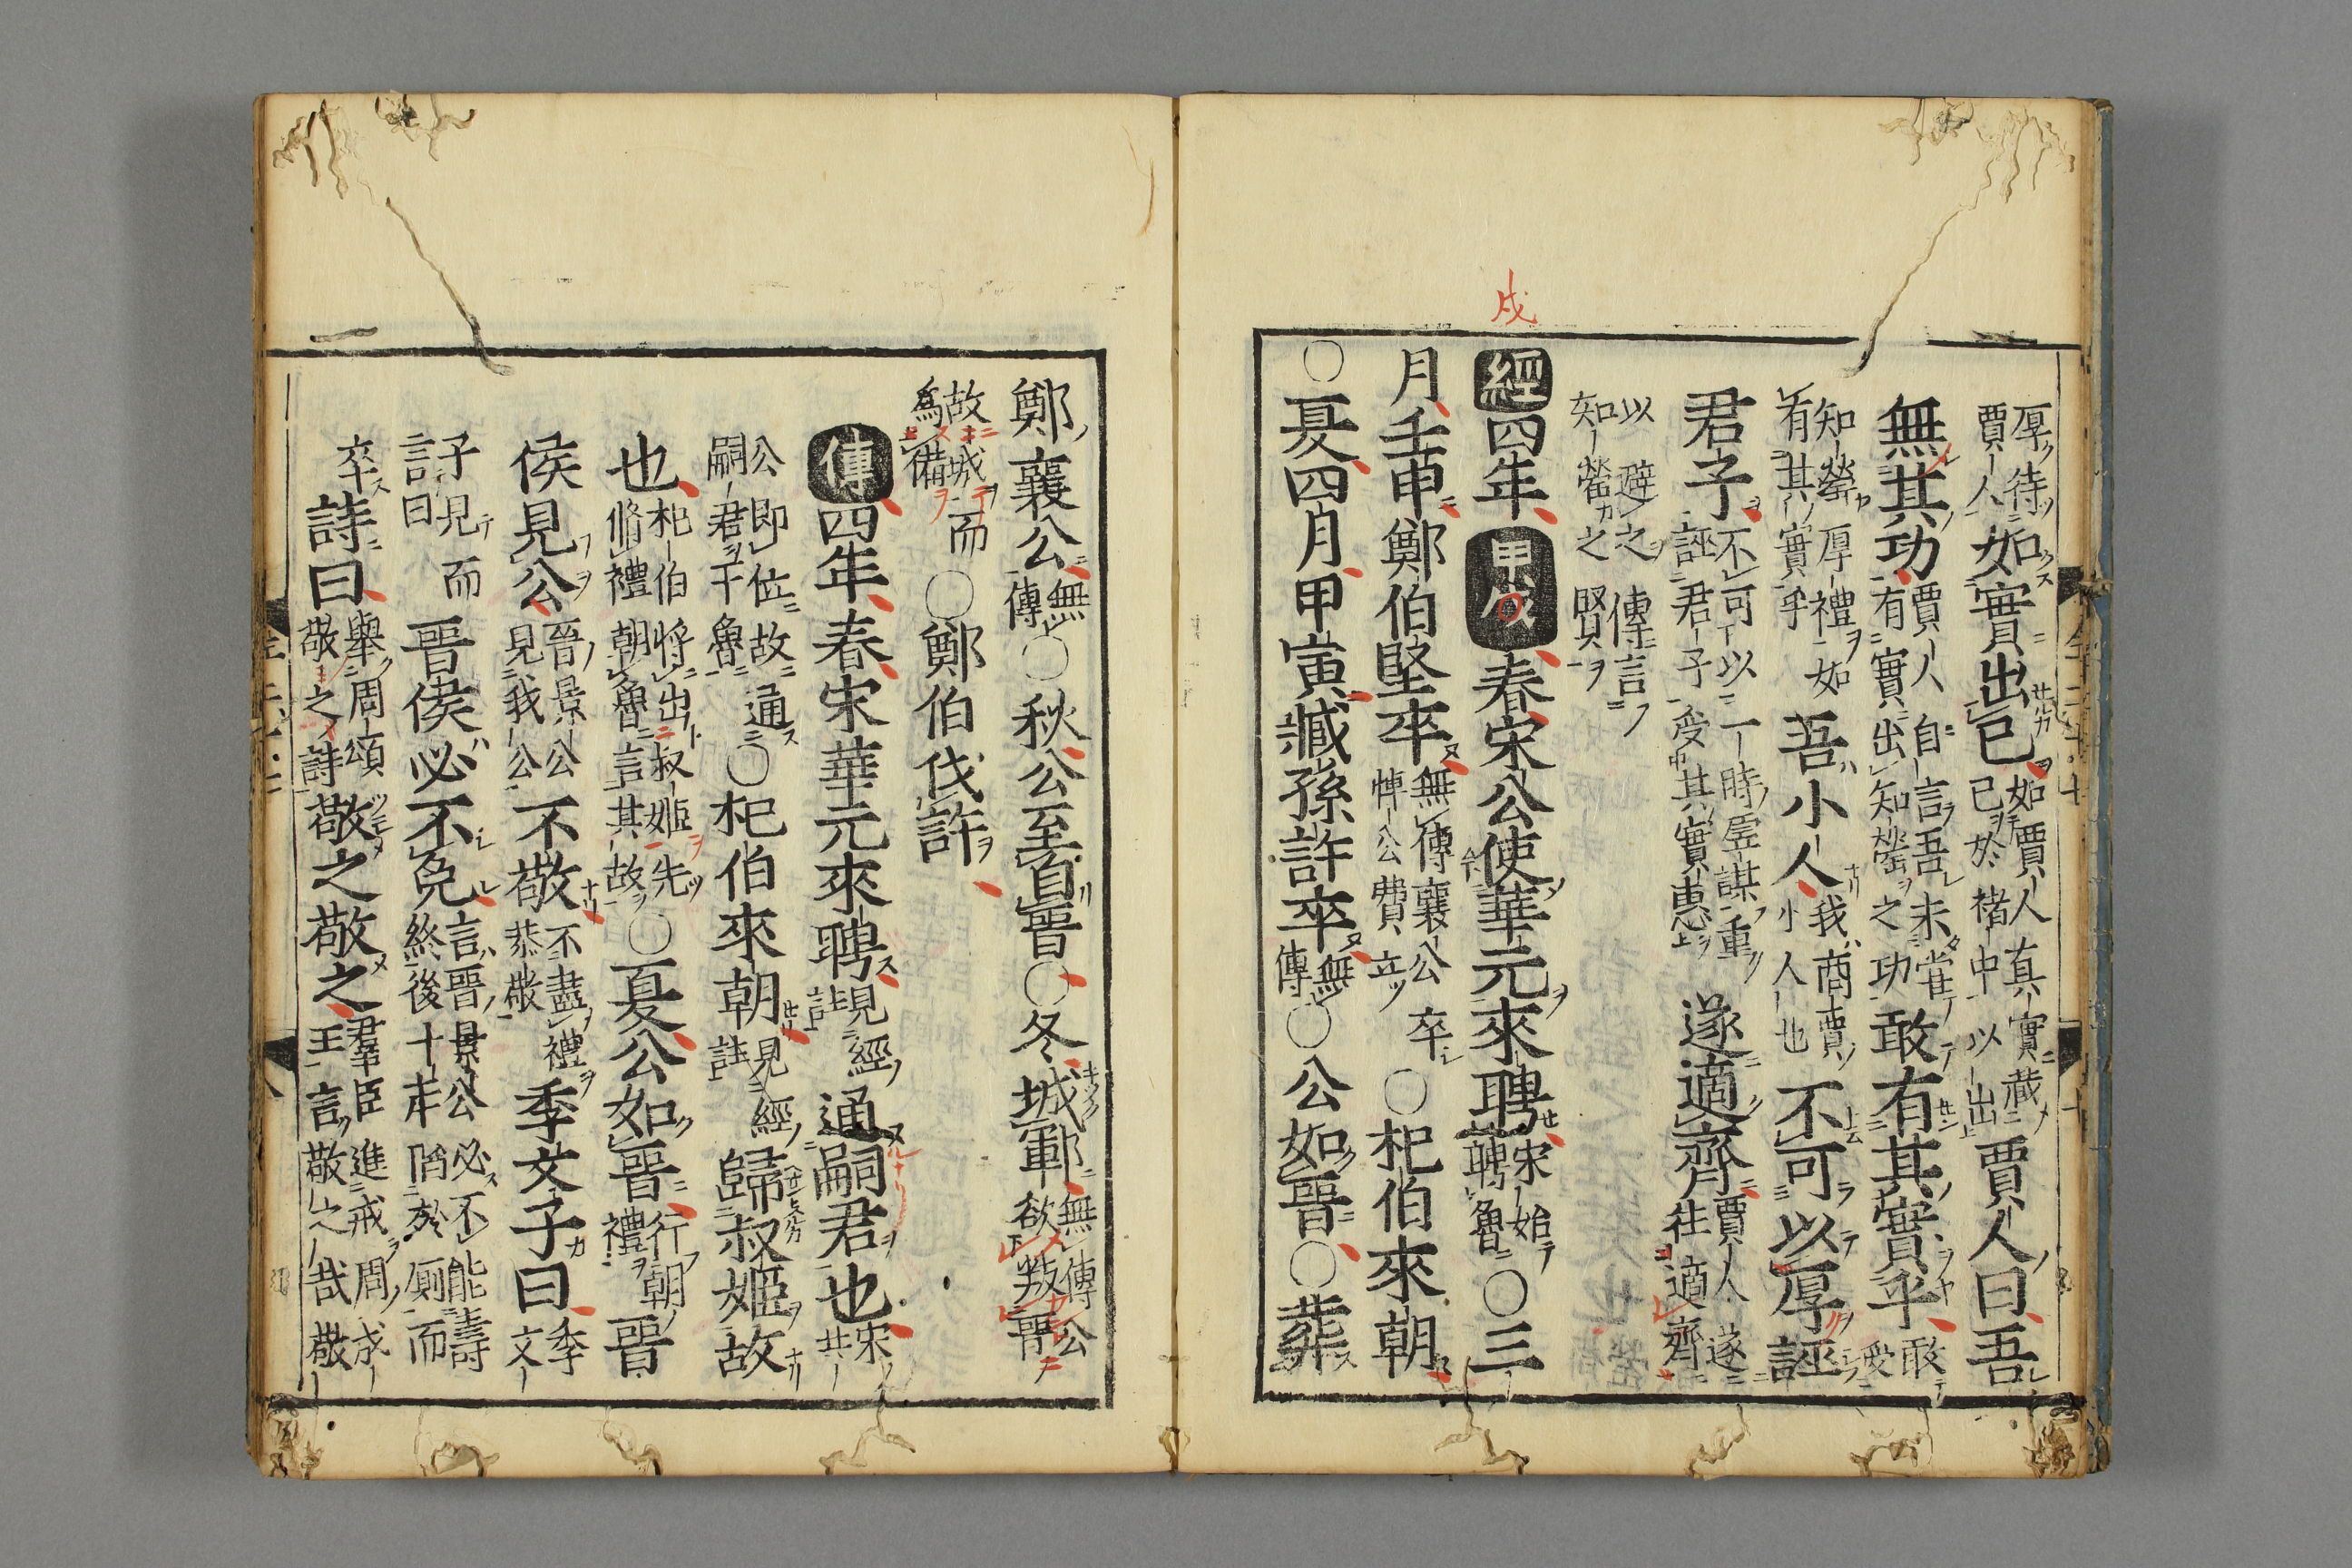 厚待賈人如實出已如賈人真實藏已於褚中以出賈人曰吾
無其功賈人自言吾未嘗有實出知罃之功敢有其實乎敢受
知罃厚禮如有其實乎吾小人我商賈小人也不可以厚誣
君子不可以一時虛謀重誣君子受其實惠遂適齊賈人遂往適齊
以避之傳言知罃之賢
經四年甲戌春宋公使華元來聘宋始聘魯○三
月壬申鄭伯堅卒無傳襄公卒悼公費立○杞伯來朝
○夏四月甲寅臧孫許卒無傳○公如晉○葬
戌
鄭襄公無傳○秋公至自晉○冬城鄆無傳公欲叛晉
故城而爲備○鄭伯伐許
傳四年春宋華元來聘見經註通嗣君也宋共
公即位故通嗣君于魯○杞伯來朝見經註歸叔姬故
也杞伯將出叔姬先脩禮朝魯言其故○夏公如晉行朝禮晉
侯見公晉景公見我公不敬不盡禮恭敬季文子曰季文
子見而言曰晉侯必不免言晉景公必不能壽終後十年陷於厠而
卒詩曰舉周頌敬之詩敬之敬之羣臣進戒周成王言敬之哉敬